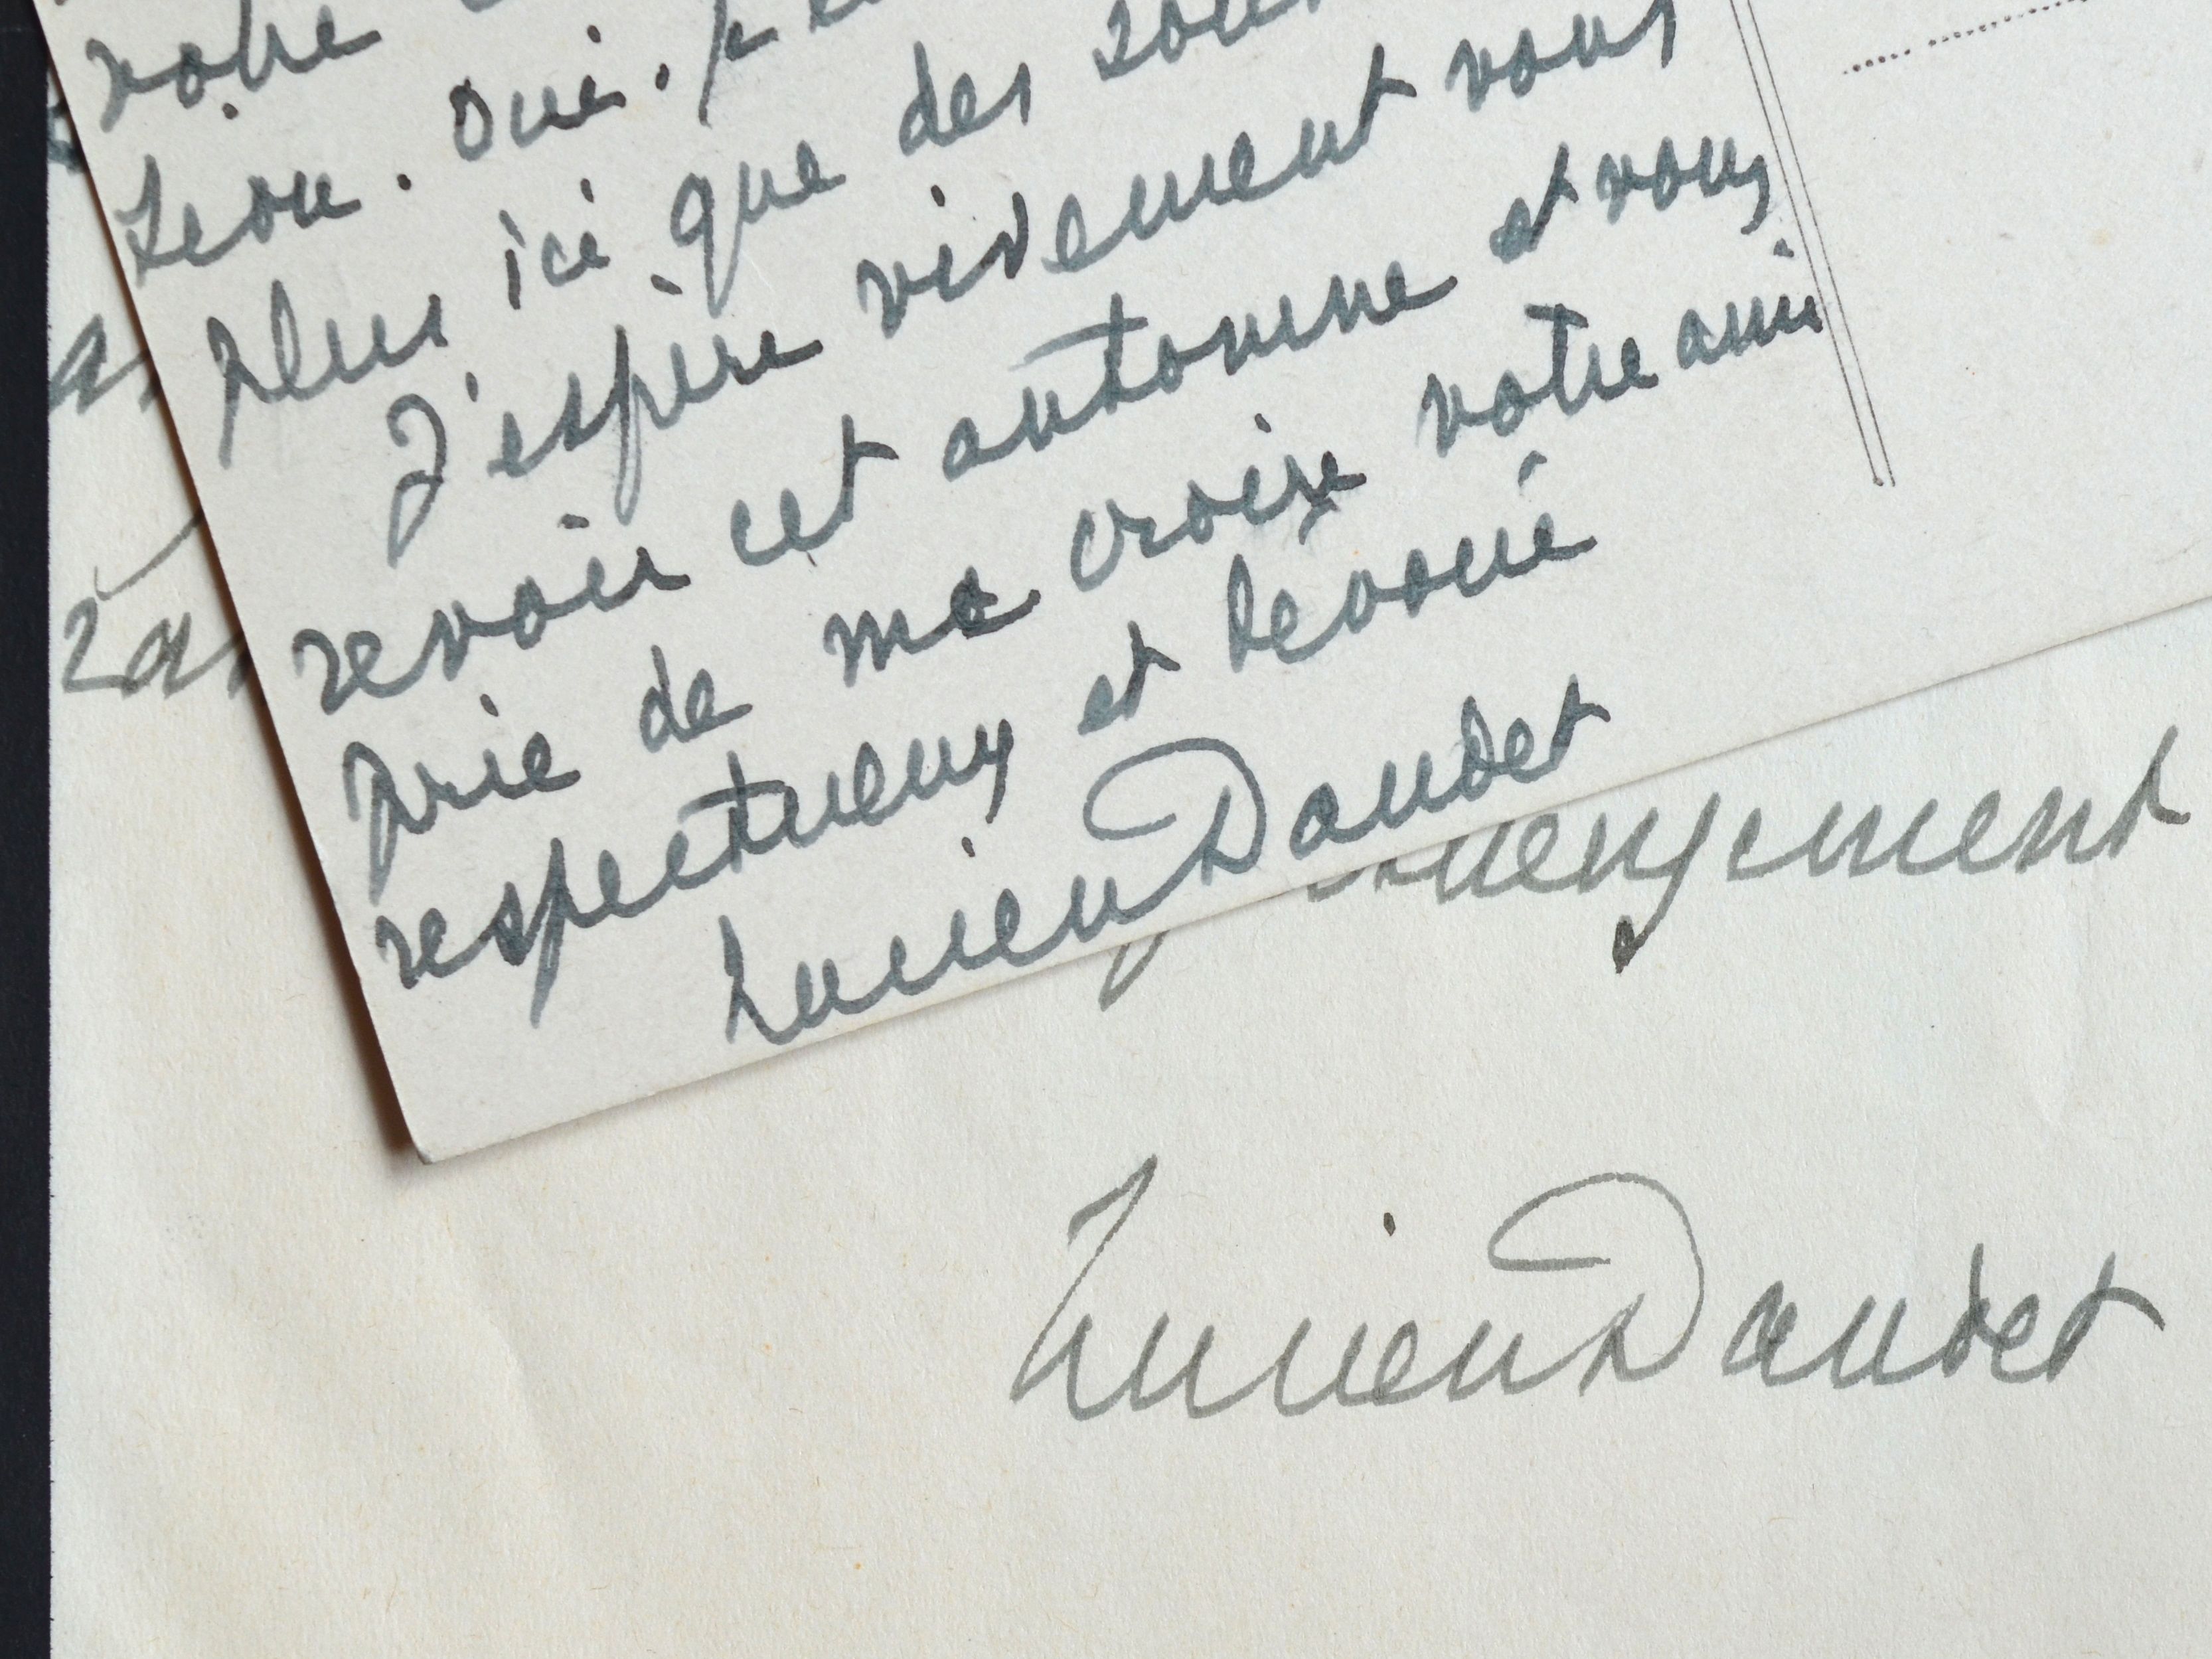 votre
Léon. Oui. Je
plus ici que des
J'espère vivement vous
revoir cet automne et vous
prie de me croire votre ami
respectueux et dévoué
Lucien Daudet
Lucien Daudet